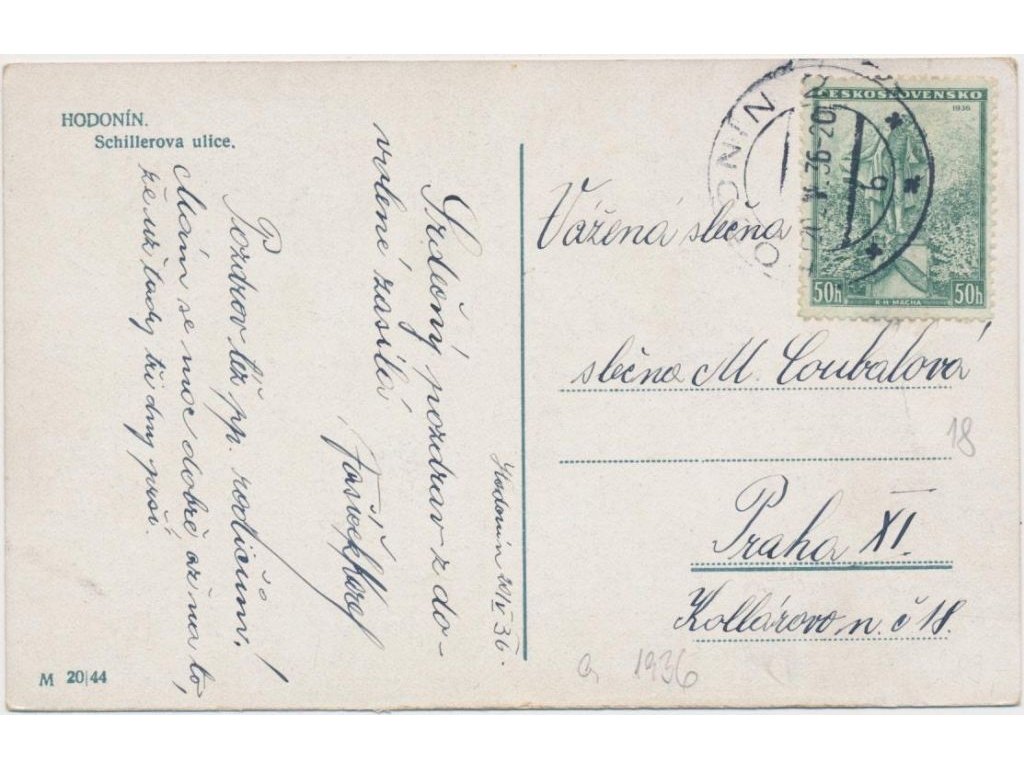 HODONÍN.
Schillerova ulice.
Hodonín 20/V 36.
Srdečný pozdrav z do-
volené zasílá
Pozdrav též pp. rodičům!
Mám se moc dobře až na to,
že už tady tři dny prší.
M 20/44
HODONÍN
V.36-20
ČESKOSLOVENSKO
1936
50h
K·H·MÁCHA
50h
Vážená slečna
slečna M. Coubalová
18
Praha XI.
Kollárovo n. č 18.
1936